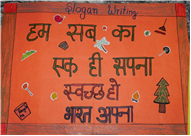 Slogan Writing
हम सब का
एक ही सपना
स्वच्छ हो
भारत अपना